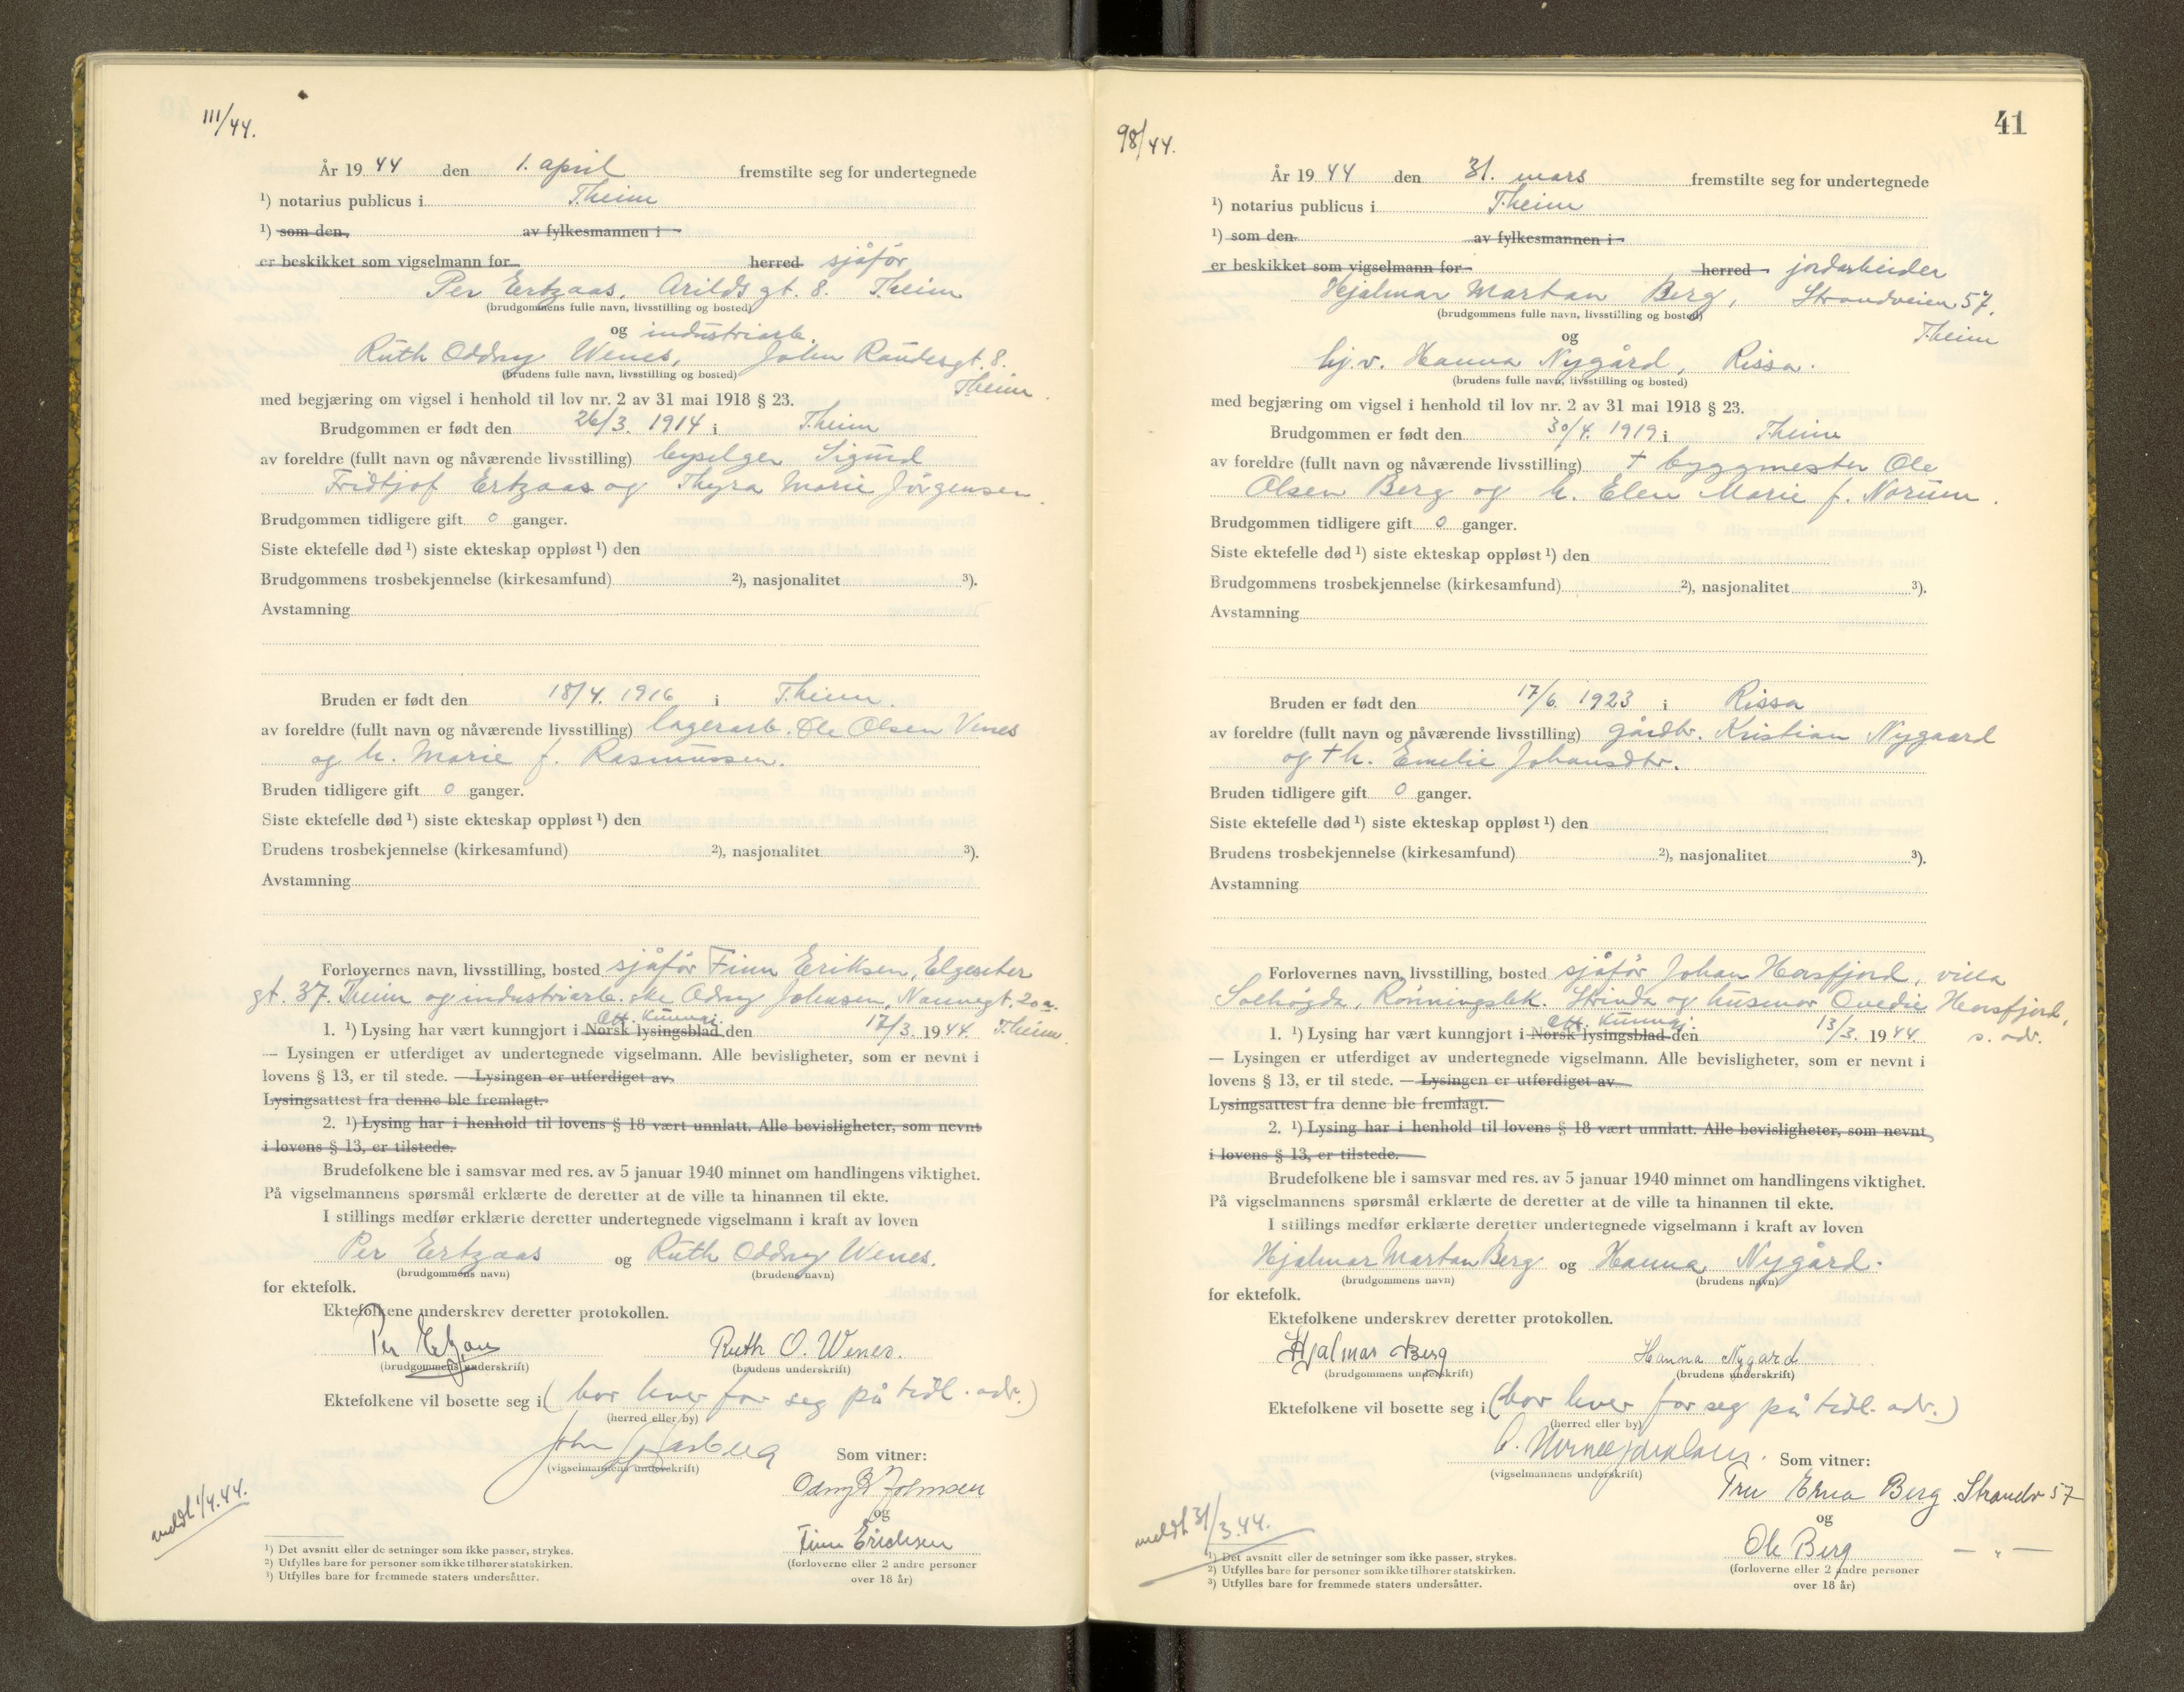 111/44.
År 19 44 den 1. april fremstilte seg for undertegnede
¹) notarius publicus i T.heim
¹) som den av fylkesmannen i
er beskikket som vigselmann for herred sjåfør
Per Ertzaas, Arildsgt. 8. T.heim
(brudgommens fulle navn, livsstilling og bosted)
og industriarb.
Ruth Oddny Wenes, John Randesgt. 8.
(brudens fulle navn, livsstilling og bosted)
T.heim.
med begjæring om vigsel i henhold til lov nr. 2 av 31 mai 1918 § 23.
Brudgommen er født den 26/3. 1914 i T.heim
av foreldre (fullt navn og nåværende livsstilling) Sigurd
Fridtjof Ertzaas og Thyra Marie Jörgensen.
Brudgommen tidligere gift 0 ganger.
Siste ektefelle død ¹) siste ekteskap oppløst ¹) den
Brudgommens trosbekjennelse (kirkesamfund) ²), nasjonalitet ³).
Avstamning
Bruden er født den 18/4. 1916 i T.heim.
av foreldre (fullt navn og nåværende livsstilling) lagerarb. Ole Olsen Venes
og h. Marie f. Rasmussen.
Bruden tidligere gift 0 ganger.
Siste ektefelle død ¹) siste ekteskap oppløst ¹) den
Brudens trosbekjennelse (kirkesamfund) ²), nasjonalitet ³).
Avstamning
Forlovernes navn, livsstilling, bosted sjåfør Finn Eriksen, Elgeseter
gt. 37. T.heim og industriarb.ske Odny Johnsen, Nannegt. 20a.
Off. kunngj.
1. ¹) Lysing har vært kunngjort i Norsk lysingsblad den 17/3. 1944. T.heim.
— Lysingen er utferdiget av undertegnede vigselmann. Alle bevisligheter, som er nevnt i
lovens § 13, er til stede. — Lysingen er utferdiget av
Lysingsattest fra denne ble fremlagt.
2. ¹) Lysing har i henhold til lovens § 18 vært unnlatt. Alle bevisligheter, som nevnt
i lovens § 13, er tilstede.
Brudefolkene ble i samsvar med res. av 5 januar 1940 minnet om handlingens viktighet.
På vigselmannens spørsmål erklærte de deretter at de ville ta hinannen til ekte.
I stillings medfør erklærte deretter undertegnede vigselmann i kraft av loven
Per Ertzaas og Ruth Oddny Wenes.
(brudgommens navn) (brudens navn)
for ektefolk.
Ektefolkene underskrev deretter protokollen.
Per Ertzaas Ruth O. Wenes.
(brudgommens underskrift) (brudens underskrift)
Ektefolkene vil bosette seg i (bor hver for seg på tidl. adr.)
(herred eller by)
(vigselmannens underskrift)
Som vitner:
Odny Johnsen
og
Finn Erichsen
(forloverne eller 2 andre personer
over 18 år)
meldt 1/4.44.
¹) Det avsnitt eller de setninger som ikke passer, strykes.
²) Utfylles bare for personer som ikke tilhører statskirken.
³) Utfylles bare for fremmede staters undersåtter.
41
98/44.
År 19 44 den 31. mars fremstilte seg for undertegnede
¹) notarius publicus i T.heim
¹) som den av fylkesmannen i
er beskikket som vigselmann for herred jordarbeider
Hjalmar Martan Berg, Strandveien 57.
(brudgommens fulle navn, livsstilling og bosted)
T.heim
og
hj.v. Hanna Nygård, Rissa.
(brudens fulle navn, livsstilling og bosted)
med begjæring om vigsel i henhold til lov nr. 2 av 31 mai 1918 § 23.
Brudgommen er født den 30/4. 1919 i T.heim
av foreldre (fullt navn og nåværende livsstilling) † byggmester Ole
Olsen Berg og h. Elen Marie f. Norum.
Brudgommen tidligere gift 0 ganger.
Siste ektefelle død ¹) siste ekteskap oppløst ¹) den
Brudgommens trosbekjennelse (kirkesamfund) ²), nasjonalitet ³).
Avstamning
Bruden er født den 17/6. 1923 i Rissa
av foreldre (fullt navn og nåværende livsstilling) gårdbr. Kristian Nygaard
og † h. Emelie Johansdtr.
Bruden tidligere gift 0 ganger.
Siste ektefelle død ¹) siste ekteskap oppløst ¹) den
Brudens trosbekjennelse (kirkesamfund) ²), nasjonalitet ³).
Avstamning
Forlovernes navn, livsstilling, bosted sjåfør Johan Horsfjord, villa
Solhøgda, Rønningsbk. Strinda og husmor Ovedie Horsfjord,
Off. kunngj.
1. ¹) Lysing har vært kunngjort i Norsk lysingsblad den 13/3. 1944. s. adr.
— Lysingen er utferdiget av undertegnede vigselmann. Alle bevisligheter, som er nevnt i
lovens § 13, er til stede. — Lysingen er utferdiget av
Lysingsattest fra denne ble fremlagt.
2. ¹) Lysing har i henhold til lovens § 18 vært unnlatt. Alle bevisligheter, som nevnt
i lovens § 13, er tilstede.
Brudefolkene ble i samsvar med res. av 5 januar 1940 minnet om handlingens viktighet.
På vigselmannens spørsmål erklærte de deretter at de ville ta hinannen til ekte.
I stillings medfør erklærte deretter undertegnede vigselmann i kraft av loven
Hjalmar Martan Berg og Hanna Nygård.
(brudgommens navn) (brudens navn)
for ektefolk.
Ektefolkene underskrev deretter protokollen.
Hjalmar Berg Hanna Nygard
(brudgommens underskrift) (brudens underskrift)
Ektefolkene vil bosette seg i (bor hver for seg på tidl. adr.)
(herred eller by)
(vigselmannens underskrift)
Som vitner:
Fru Erna Berg Strandv 57
og
Ole Berg — " —
(forloverne eller 2 andre personer
over 18 år)
meldt 31/3.44.
¹) Det avsnitt eller de setninger som ikke passer, strykes.
²) Utfylles bare for personer som ikke tilhører statskirken.
³) Utfylles bare for fremmede staters undersåtter.